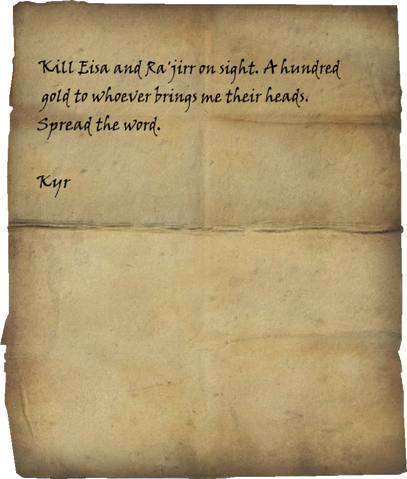 Kill Eisa and Ra'jirr on sight. A hundred
gold to whoever brings me their heads.
Spread the word.
Kyr